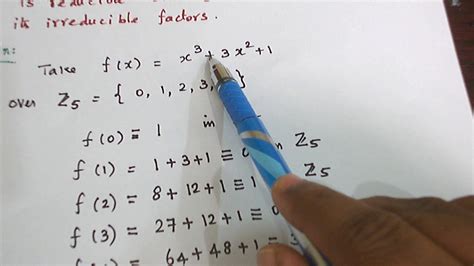 is reducible
its irreducible factors.
n:
Take f(x) = x³ + 3x² + 1
over Z₅ = { 0, 1, 2, 3, }
f(0) = 1 in
f(1) = 1 + 3 + 1 ≡ 0 in Z₅
f(2) = 8 + 12 + 1 ≡ 1 Z₅
f(3) = 27 + 12 + 1 ≡
64 + 48 + 1